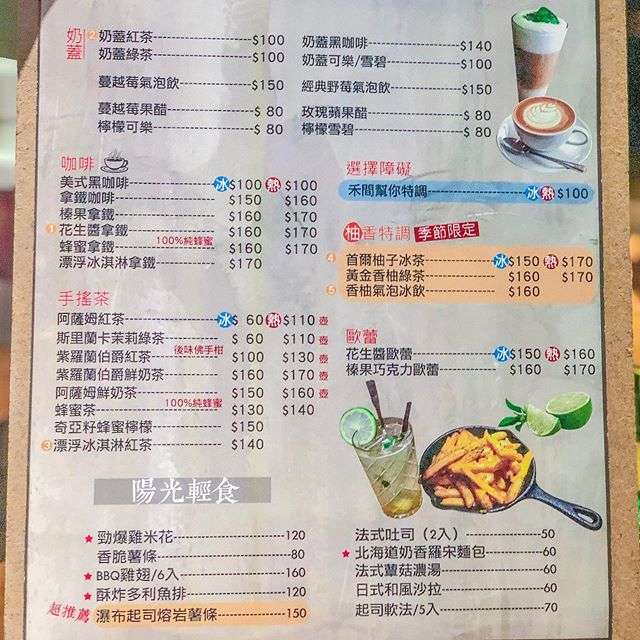 奶蓋
2 奶蓋紅茶 $100
奶蓋綠茶 $100
蔓越莓氣泡飲 $150
蔓越莓果醋 $ 80
檸檬可樂 $ 80
奶蓋黑咖啡 $140
奶蓋可樂/雪碧 $100
經典野莓氣泡飲 $150
玫瑰蘋果醋 $ 80
檸檬雪碧 $ 80
咖啡
美式黑咖啡 冰 $100 熱 $100
拿鐵咖啡 $150 $160
榛果拿鐵 $160 $170
1 花生醬拿鐵 $160 $170
蜂蜜拿鐵 100%純蜂蜜 $160 $170
漂浮冰淇淋拿鐵 $170
選擇障礙
禾間幫你特調 冰 熱 $100
柚香特調 季節限定
4 首爾柚子冰茶 冰 $150 熱 $170
黃金香柚綠茶 $160 $170
5 香柚氣泡冰飲 $160
手搖茶
阿薩姆紅茶 冰 $ 60 熱 $110 壺
斯里蘭卡茉莉綠茶 $ 60 $110 壺
紫羅蘭伯爵紅茶 後味佛手柑 $100 $130 壺
紫羅蘭伯爵鮮奶茶 $160 $170 壺
阿薩姆鮮奶茶 $150 $160 壺
蜂蜜茶 100%純蜂蜜 $130 $140
奇亞籽蜂蜜檸檬 $150
3 漂浮冰淇淋紅茶 $140
歐蕾
花生醬歐蕾 冰 $150 熱 $160
榛果巧克力歐蕾 $160 $170
陽光輕食
★ 勁爆雞米花 120
香脆薯條 80
★ BBQ雞翅/6入 160
★ 酥炸多利魚排 120
超推薦 瀑布起司熔岩薯條 150
法式吐司（2入） 50
★ 北海道奶香羅宋麵包 60
法式蕈菇濃湯 60
日式和風沙拉 60
起司軟法/5入 70